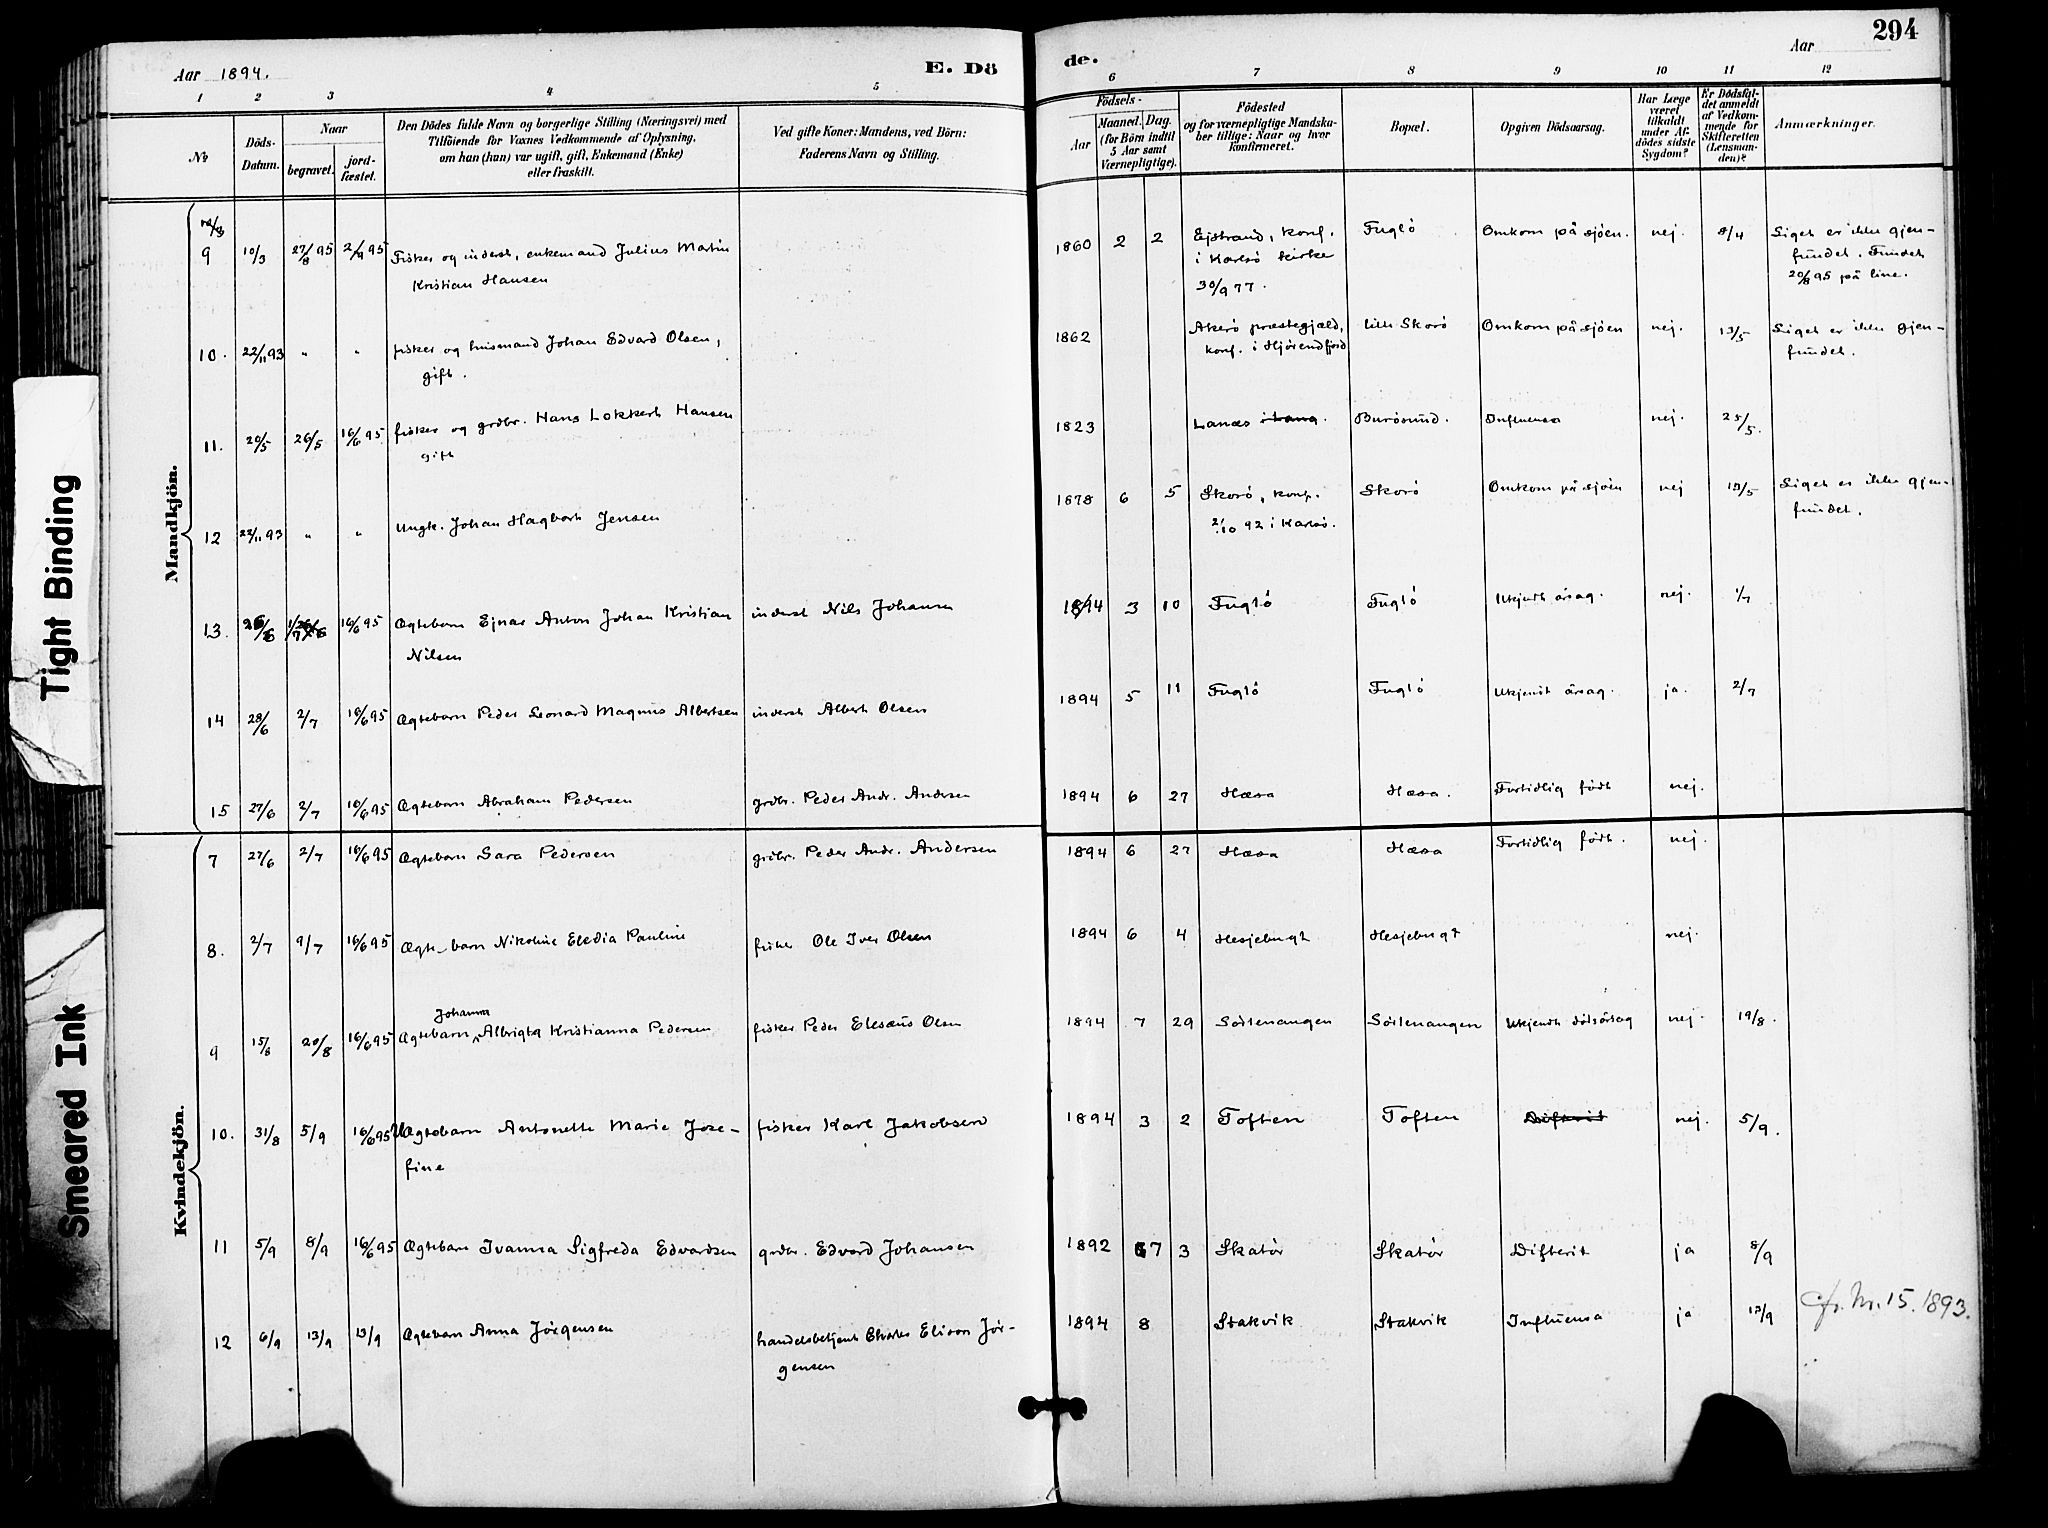 294
Aar 1894. E. Dö de. Aar
1 2 3 4 5 6 7 8 9 10 11 12
No
Döds-Datum.
Naar
begravet.
jord-fæstet.
Den Dödes fulde Navn og borgerlige Stilling (Næringsvei) med
Tilföiende for Voxnes Vedkommende af Oplysning,
om han (hun) var ugift, gift, Enkemand (Enke)
eller fraskilt.
Ved gifte Koner: Mandens, ved Börn:
Faderens Navn og Stilling.
Födsels-
Aar
Maaned. Dag.
(for Börn indtil
5 Aar samt
Værnepligtige).
Födested
og for værnepligtige Mandska-
ber tillige: Naar og hvor
Konfirmeret.
Bopæl.
Opgiven Dödsaarsag.
Har Læge
været
tilkaldt
under Af-
dödes sidste
Sygdom?
Er Dödsfal-
det anmeldt
af Vedkom-
mende for
Skifteretten
(Lensman-
den)?
Anmærkninger.
Mandkjön.
9 10/3 27/8 95 2/9 95 Fisker og inderst, enkemand Julius Martin 1860 2 2 Ejstrand, konf. Fuglö Omkom på sjöen. nej. 8/4 Liget er ikke gjen-
Kristian Hansen i Karlsö kirke fundet. Fundet
30/9 77. 20/8 95 på line.
10. 22/11 93 " " fisker og husmand Johan Edvard Olsen, 1862 Akerö præstegjæld, lille Skorö Omkom på sjöen nej. 13/5 Liget er ikke gjen-
gift. konf. i Hjörendfjord fundet.
11. 20/5 26/5 16/6 95 fisker og grdbr. Hans Lokkert Hansen 1823 Lanæs Burösund. Influensa nej. 25/5.
gift
12 22/11 93 " " Ungk. Johan Hagbart Jensen 1878 6 5 Skorö, konf. Skorö Omkom på sjöen nej 13/5 Liget er ikke gjen-
2/10 92 i Karlsö. fundet.
13. 26/6 1/7 16/6 95 Ægtebarn Ejnar Anton Johan Kristian inderst Nils Johansen 1894 3 10 Fuglö Fuglö Ukjendt årsag. nej. 1/7
Nilsen
14 28/6 2/7 16/6 95 Ægtebarn Peder Leonard Magnus Albertsen inderst Albert Olsen 1894 5 11 Fuglö Fuglö Ukjendt årsag. ja. 2/7
15 27/6 2/7 16/6 95 Ægtebarn Abraham Pedersen grdbr. Peder Andr. Andersen 1894 6 27 Hæsa Hæsa. Fortidlig födt nej.
Kvindekjön.
7 27/6 2/7 16/6 95 Ægtebarn Sara Pedersen grdbr. Peder Andr. Andersen 1894 6 27 Hæsa Hæsa Fortidlig födt. nej.
8. 2/7 9/7 16/6 95 Ægte-barn Nikoline Eledia Pauline fisker Ole Iver Olsen 1894 6 4 Hesjebugt Hesjebugt nej.
Johanna
9 15/8 20/8 16/6 95 Ægtebarn Albrigta Kristianna Pedersen fisker Peder Elesæus Olsen 1894 7 29 Sörlenangen Sörlenangen Ukjendt dödsårsag nej. 19/8.
10. 31/8 5/9 16/6 95 Ægtebarn Antonette Marie Jose- fisker Karl Jakobsen 1894 3 2 Toften Toften Difterit nej. 5/9.
fine
11 5/9 8/9 16/6 95 Ægtebarn Ivanna Sigfreda Edvardsen grdbr. Edvard Johansen 1892 7 3 Skatör Skatör Difterit ja 8/9
12 6/9 13/9 13/9 Ægtebarn Anna Jörgensen handelsbetjent Charles Elison Jör- 1894 8 Stakvik Stakvik Influensa ja 13/9 Cfr. Nr. 15. 1893.
gensen
Tight Binding
Smeared Ink